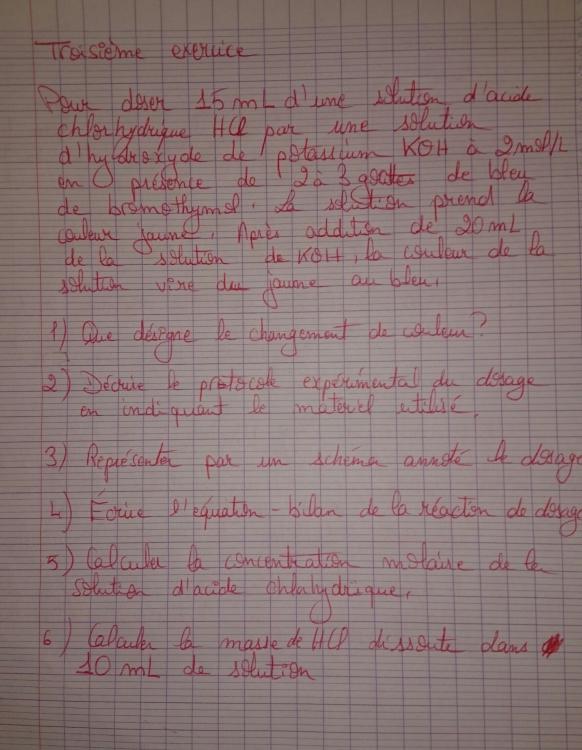 Troisième exercice
Pour doser 15 mL d'une solution d'acide
chlorhydrique HCl par une solution
d'hydroxyde de potassium KOH à 2mol/L
en présence de 2 à 3 gouttes de bleu
de bromothymol. La solution prend la
couleur jaune. Après addition de 20 mL
de la solution de KOH, la couleur de la
solution vire du jaune au bleu.
1) Que désigne le changement de couleur?
2) Décrire le protocole expérimental du dosage
en indiquant le matériel utilisé.
3) Représenter par un schéma annoté le dosage
4) Écrire l'équation-bilan de la réaction de dosage
5) Calculer la concentration molaire de la
solution d'acide chlohydrique.
6) Calculer la masse de HCl dissoute dans
10 mL de solution